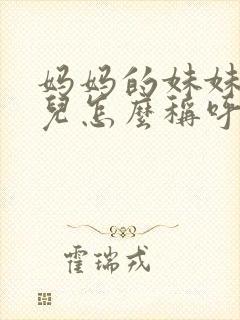 妈妈的妹妹
兒怎麼稱呼
霍瑞戎